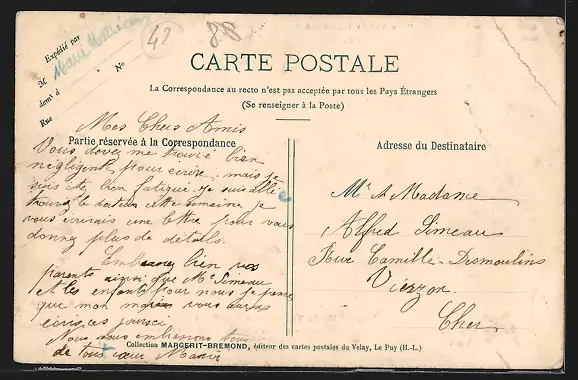 42
88
Expédié par
M
demt à
Rue
No
CARTE POSTALE
La Correspondance au recto n'est pas acceptée par tous les Pays Étrangers
(Se renseigner à la Poste)
Mes Chers Amis
Partie réservée à la Correspondance
Vous devez me trouvé bien
négligente, pour écrire, mais je
suis été bien fatigué. je suis allé
trouvé le docteur cette semaine je
vous écrirais une lettre pour vous
donnez plus de détails.
Embrassez bien vos
parents ainsi que Mr Simeau
et les enfants pour nous je pense
que mon vous auras
écris, ces jours ci
Nous vous embrassons tous
de tous cœur
Adresse du Destinataire
Mr & Madame
Alfred Simeau
Rue Camille-Desmoulins
Vierzon
Cher
Collection MARGERIT-BREMOND, éditeur des cartes postales du Velay, Le Puy (H.-L.)